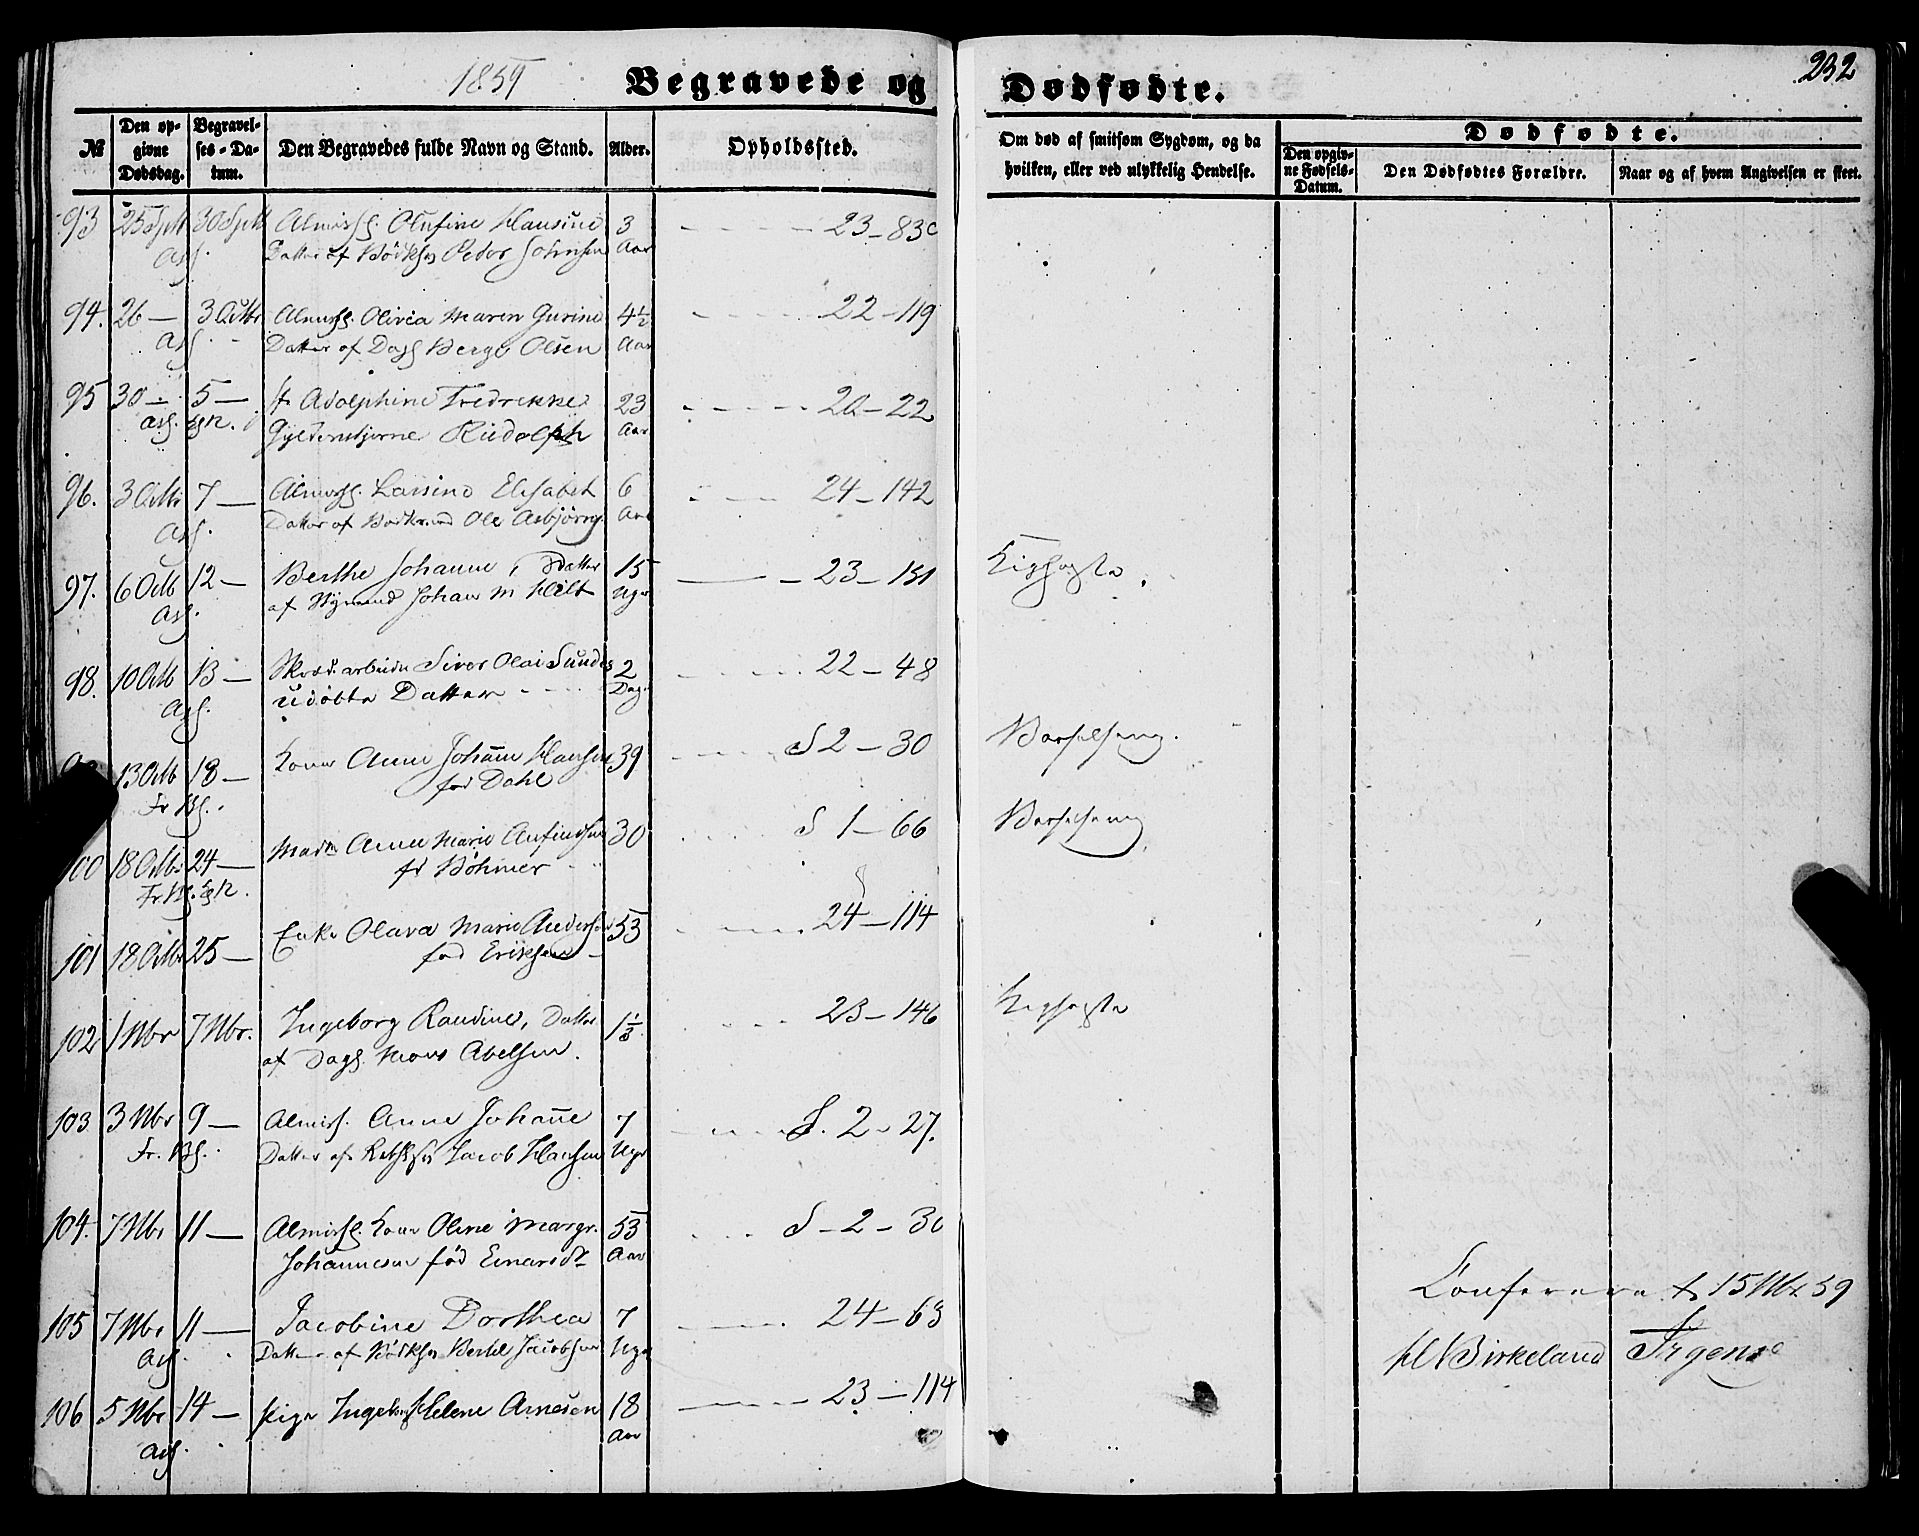 1859
Begravede og Dødfødte.
232
No
Den opgivne Dødsdag.
Begravelses-Datum.
Den Begravedes fulde Navn og Stand.
Alder.
Opholdssted.
Om død af smitsom Sygdom, og da hvilken, eller ved ulykkelig Hendelse.
Dødfødte.
Den opgivne Fødsels-Datum.
Den Dødfødtes Forældre.
Naar og af hvem Angivelsen er skeet.
93 25 Sept 30 Sept Almissl. Olufine Hansine 3 23-83c
Datter af Bødksv Peder Johnsen Aar
94. 26 — 3 Octbr Almissl. Olivia Maren Gurine 4½ 22-119
Datter af Dagl Berge Olsen Aar
95 30 — 5 — Adolphine Fredrikke 23 20-22
Gyldenstjerne Rudolph Aar
96. 3 Octbr 7 — Almissl. Larsine Elisabet 6 24-142
Datter af Ole Asbjørns. Aar
97. 6 Octb 12 — Berthe Johanne, Datter 15 23-151 Kighoste.
af Johan M Hilt Uger
98. 10 Octb 13 — Skræd.arbeider Siver Olai Sundes 2 22-48
udøbte Datter Dage
13 Octb 18 — Kone Anne Johanne Hansen 39 S 2-30 Barselseng.
fød Dahl
Fr Bg.
100 18 Octbr 24 — Madm Anne Marie Anfindsen 30 S 1-66 Barselseng
fd Bøhmer
101 18 Octbr 25 — Enke Olava Marie Andersen 53 24-114
fød Eriksen
102 1 Nbr 7 Nbr. Ingeborg Randine, Datter 1⅓ 23-146 Kighoste
af Dagl. Mons Abelsen.
103 3 Nbr 9 — Almissl. Anne Johanne 7 S. 2-27.
Fr. Bg. Datter af Jacob Hansen Uger
104. 7 Nbr 11 — Almissl. Kone Oline Margr. 53 S-2-30
Johannesen fød Einarsdr Aar
105 7 Nbr 11 — Jacobine Dorthea 7 24-63
Datter af Bødksv Bertel Jacobsen Uger
106 5 Nbr 14 — Pige Ingeborg Helene Arnesen 18 23-114
Aar
Confereret 15 Nbr 59
Birkeland Irgens